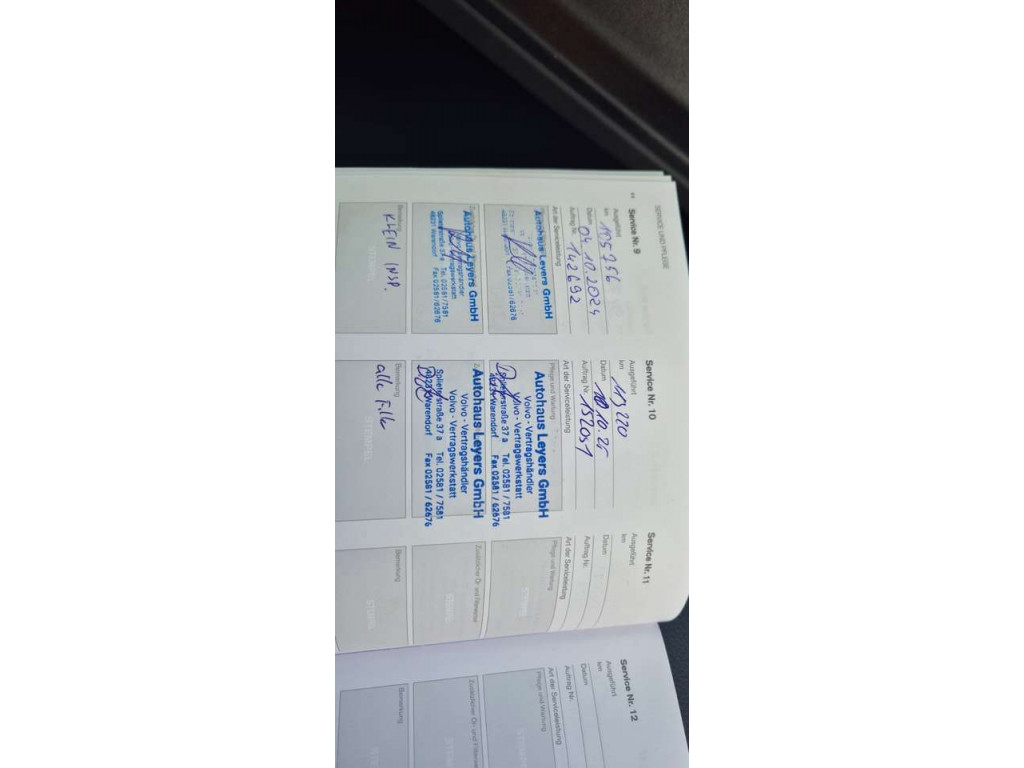 SERVICE UND PFLEGE
Service Nr. 9
Ausgeführt
km 105756
Datum 04.10.2024
Auftrag Nr. 142692
Art der Serviceleistung
Autohaus Leyers GmbH
Fax 02581/62676
Autohaus Leyers GmbH
Vertragshändler
Vertragswerkstatt
Tel. 02581/7581
48231 Warendorf Fax 02581/62676
Bemerkung
KLEIN INSP.
STEMPEL
Service Nr. 10
Ausgeführt
km 113220
Datum 10.10.25
Auftrag Nr. 152051
Art der Serviceleistung
Pflege und Wartung
Autohaus Leyers GmbH
Volvo - Vertragshändler
Volvo - Vertragswerkstatt
Splieterstraße 37 a Tel. 02581 / 7581
48231 Warendorf Fax 02581 / 62676
Autohaus Leyers GmbH
Volvo - Vertragshändler
Volvo - Vertragswerkstatt
Splieterstraße 37 a Tel. 02581 / 7581
48231 Warendorf Fax 02581 / 62676
Bemerkung
alle Filter
STEMPEL
Service Nr. 11
Ausgeführt
km
Datum
Auftrag Nr.
Art der Serviceleistung
Pflege und Wartung
STEMPEL
Zusätzlicher Öl- und Filterwechsel
STEMPEL
Bemerkung
STEMPEL
Service Nr. 12
Ausgeführt
km
Datum
Auftrag Nr.
Art der Serviceleistung
Pflege und Wartung
STEMPEL
Zusätzlicher Öl- und Filterwechsel
STEMPEL
Bemerkung
STEMPEL